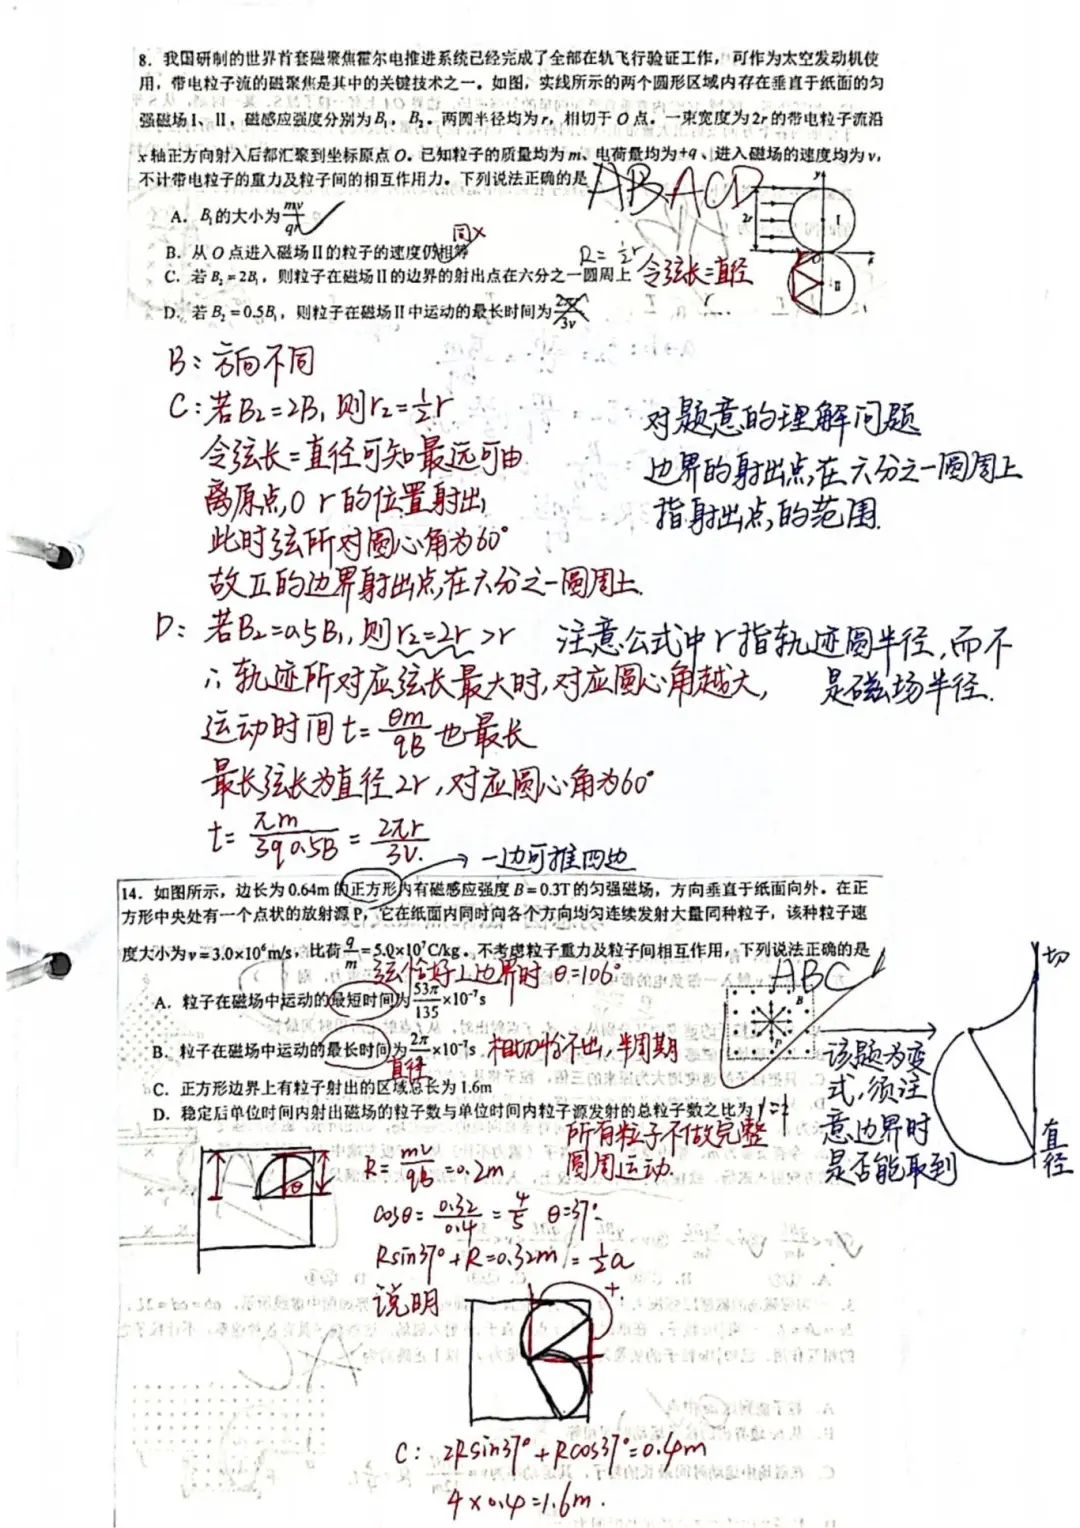 8. 我国研制的世界首套磁聚焦霍尔电推进系统已经完成了全部在轨飞行验证工作，可作为太空发动机使
用，带电粒子流的磁聚焦是其中的关键技术之一。如图，实线所示的两个圆形区域内存在垂直于纸面的匀
强磁场Ⅰ、Ⅱ，磁感应强度分别为B₁，B₂。两圆半径均为r，相切于O点。一束宽度为2r的带电粒子流沿
x轴正方向射入后都汇聚到坐标原点O。已知粒子的质量均为m、电荷量均为+q、进入磁场的速度均为v，
不计带电粒子的重力及粒子间的相互作用力。下列说法正确的是
ABACD
A. B₁的大小为mv/qr
同×
B. 从O点进入磁场Ⅱ的粒子的速度仍相等
R=½r
C. 若B₂=2B₁，则粒子在磁场Ⅱ的边界的射出点在六分之一圆周上
令弦长=直径
D. 若B₂=0.5B₁，则粒子在磁场Ⅱ中运动的最长时间为2πr/3v
y
2r
Ⅰ
O
x
Ⅱ
B：方向不同
C：若B₂=2B₁则r₂=½r
令弦长=直径可知最远可由
离原点O r的位置射出
此时弦所对圆心角为60°
故Ⅱ的边界射出点在六分之一圆周上.
对题意的理解问题
边界的射出点在六分之一圆周上
指射出点的范围.
D：若B₂=0.5B₁,则r₂=2r>r
∴轨迹所对应弦长最大时,对应圆心角越大,
运动时间t=θm/qB也最长
最长弦长为直径2r,对应圆心角为60°
t=πm/3q0.5B=2πr/3v.
注意公式中r指轨迹圆半径,而不
是磁场半径.
一边可推四边
14. 如图所示，边长为0.64m的正方形内有磁感应强度B=0.3T的匀强磁场，方向垂直于纸面向外。在正
方形中央处有一个点状的放射源P，它在纸面内同时向各个方向均匀连续发射大量同种粒子，该种粒子速
度大小为v=3.0×10⁶m/s，比荷q/m=5.0×10⁷C/kg。不考虑粒子重力及粒子间相互作用，下列说法正确的是
弦恰好⊥边界时 θ=106°
ABC
A. 粒子在磁场中运动的最短时间为53π/135×10⁻⁷s
B. 粒子在磁场中运动的最长时间为2π/3×10⁻⁷s
相切恰不出,半周期
直径
C. 正方形边界上有粒子射出的区域总长为1.6m
D. 稳定后单位时间内射出磁场的粒子数与单位时间内粒子源发射的总粒子数之比为1:2
所有粒子不做完整
圆周运动.
B
P
该题为变
式,须注
意边界时
是否能取到
切
直
径
θ
R=mv/qB=0.2m
cosθ=0.32/0.4=4/5 θ=37°
Rsin37°+R=0.32m=½a
说明
C：2Rsin37°+Rcos37°=0.4m
4×0.4=1.6m.